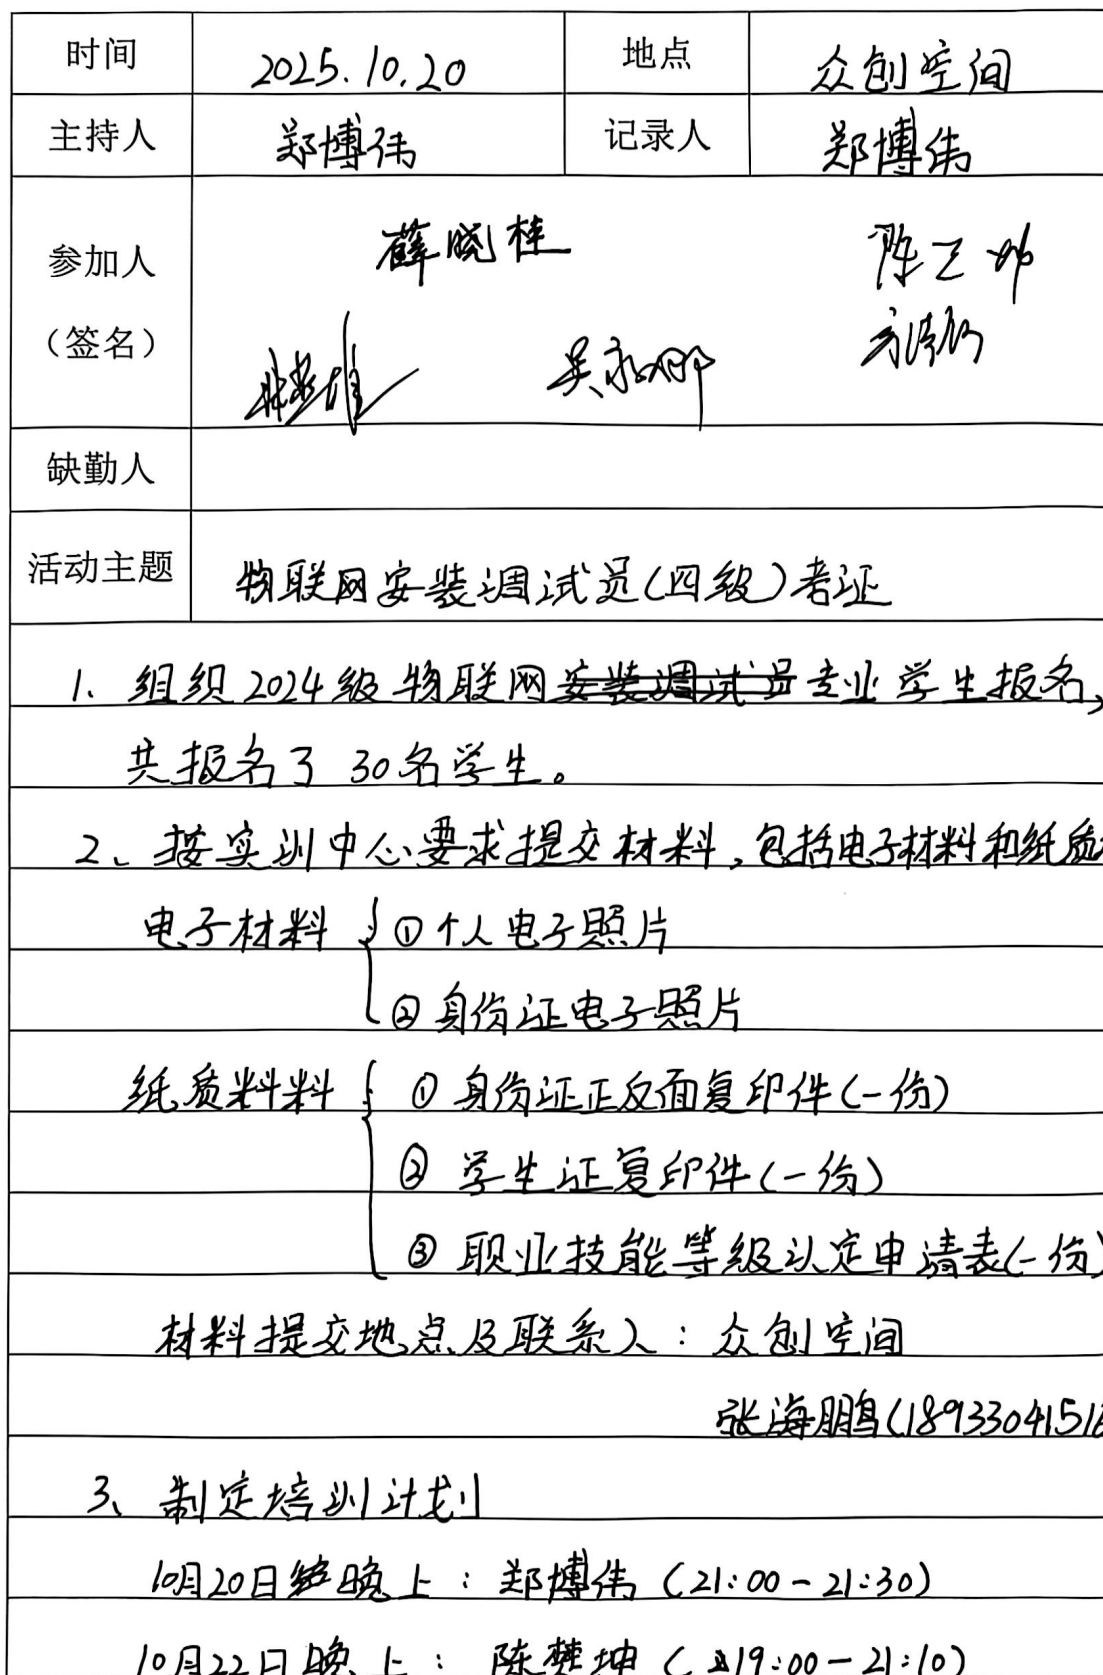 时间 2025.10.20 地点 众创空间
主持人 郑博伟 记录人 郑博伟
参加人 薛晓桂
（签名） 吴永
缺勤人
活动主题 物联网安装调试员(四级)考证
1、组织2024级物联网专业学生报名，
共报名了30名学生。
2、按实训中心要求提交材料，包括电子材料和纸质
电子材料 ①个人电子照片
②身份证电子照片
纸质料料 ①身份证正反面复印件(一份)
②学生证复印件(一份)
③职业技能等级认定申请表(一份)
材料提交地点及联系人：众创空间
张海鹏(1893304151
3、制定培训计划
10月20日晚上：郑博伟(21:00-21:30)
10月22日晚上：陈楚坤(19:00-21:10)